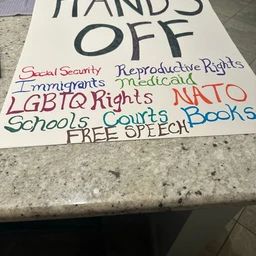 HANDS
OFF
Social Security Reproductive Rights
Immigrants Medicaid
LGBTQ Rights NATO
Schools Courts Books
FREE SPEECH